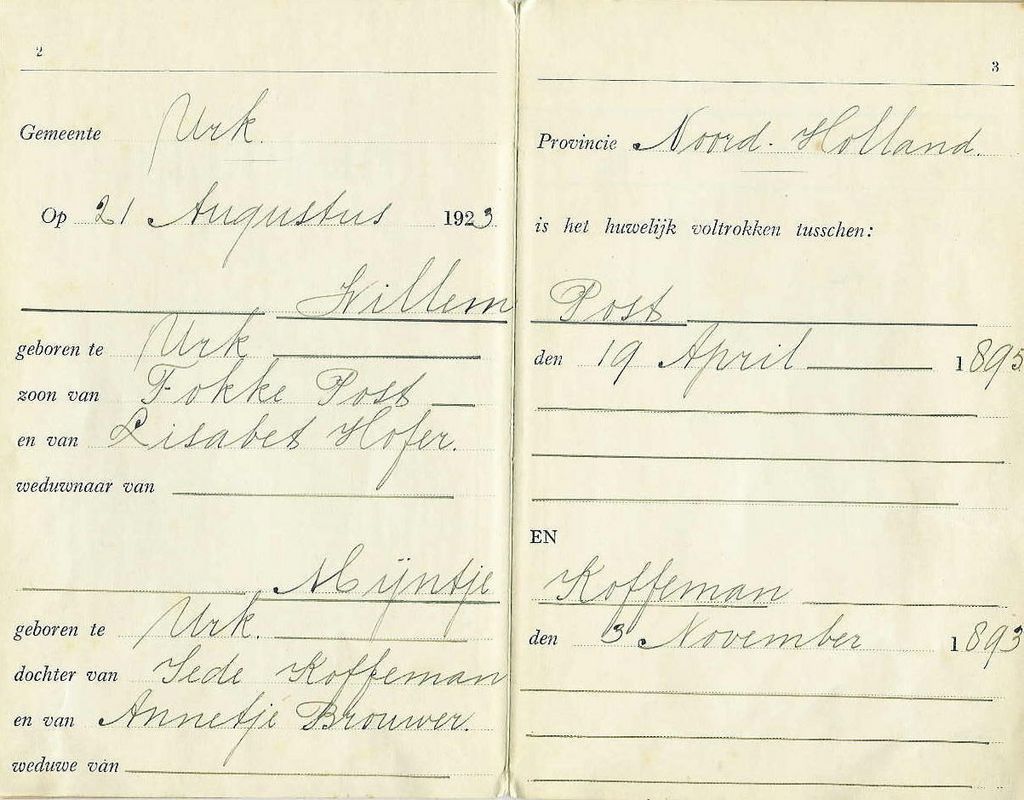 2
Gemeente Urk.
Op 21 Augustus 1923
Willem
geboren te Urk
zoon van Fokke Post
en van Lisabet Hofer.
weduwnaar van
Mijntje
geboren te Urk.
dochter van Jede Koffeman
en van Annetje Brouwer.
weduwe van
3
Provincie Noord-Holland.
is het huwelijk voltrokken tusschen:
Post
den 19 April 1895
EN
Koffeman
den 3 November 1893